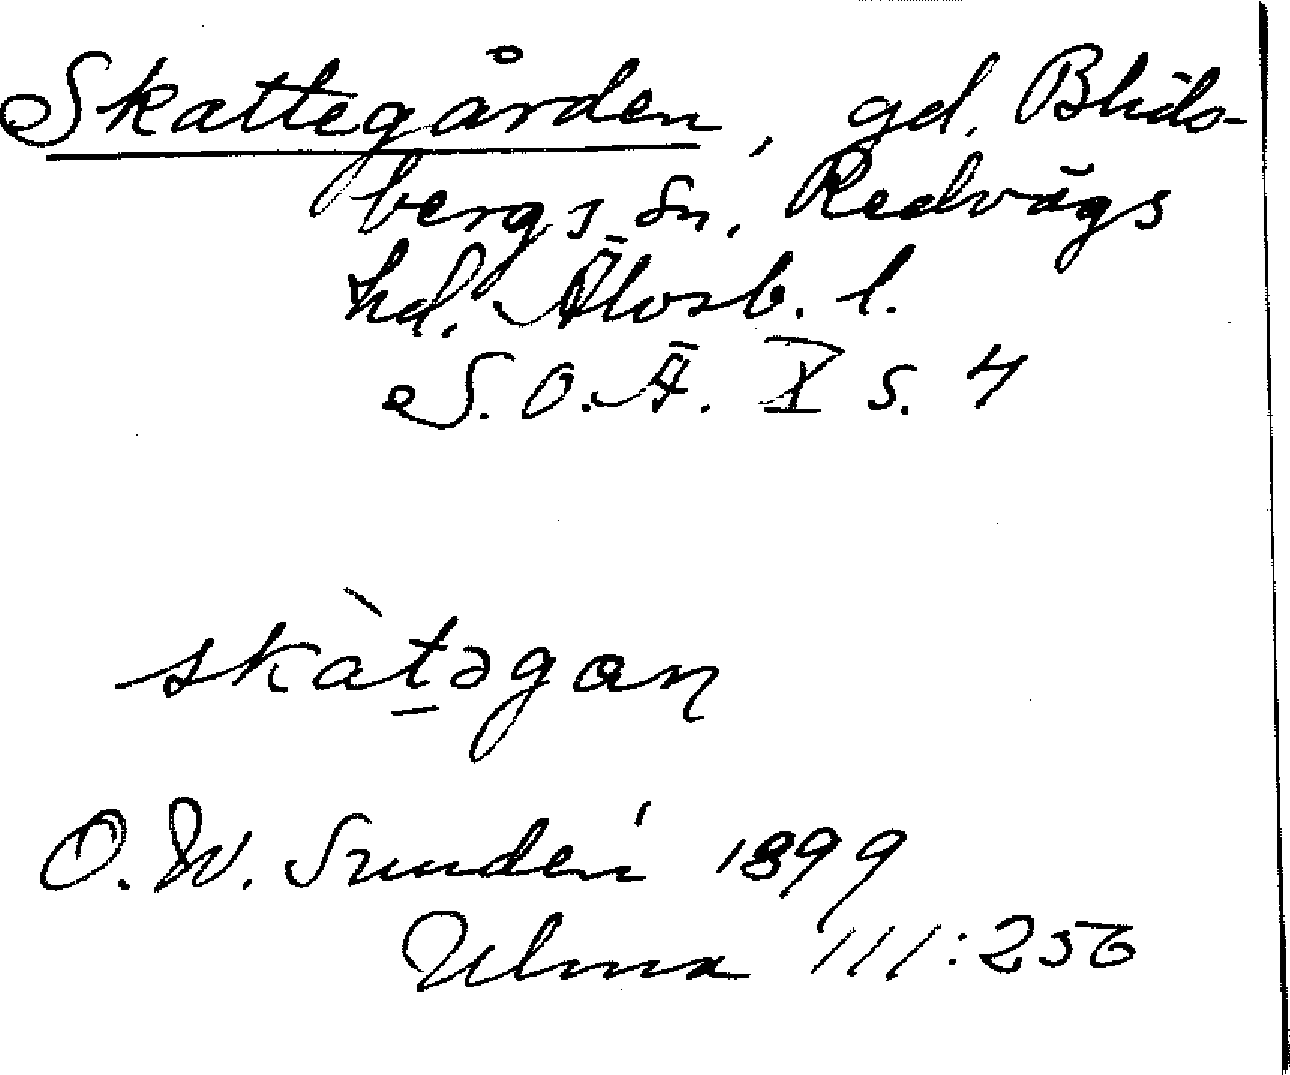 Skattegården, gd. Blids-
bergs sn. Redvägs
hd. Älvsb. l.
S.O.Ä. X s. 4
skàt̠əgaɳ
O.W. Sundén 1899
Ulma 111:256